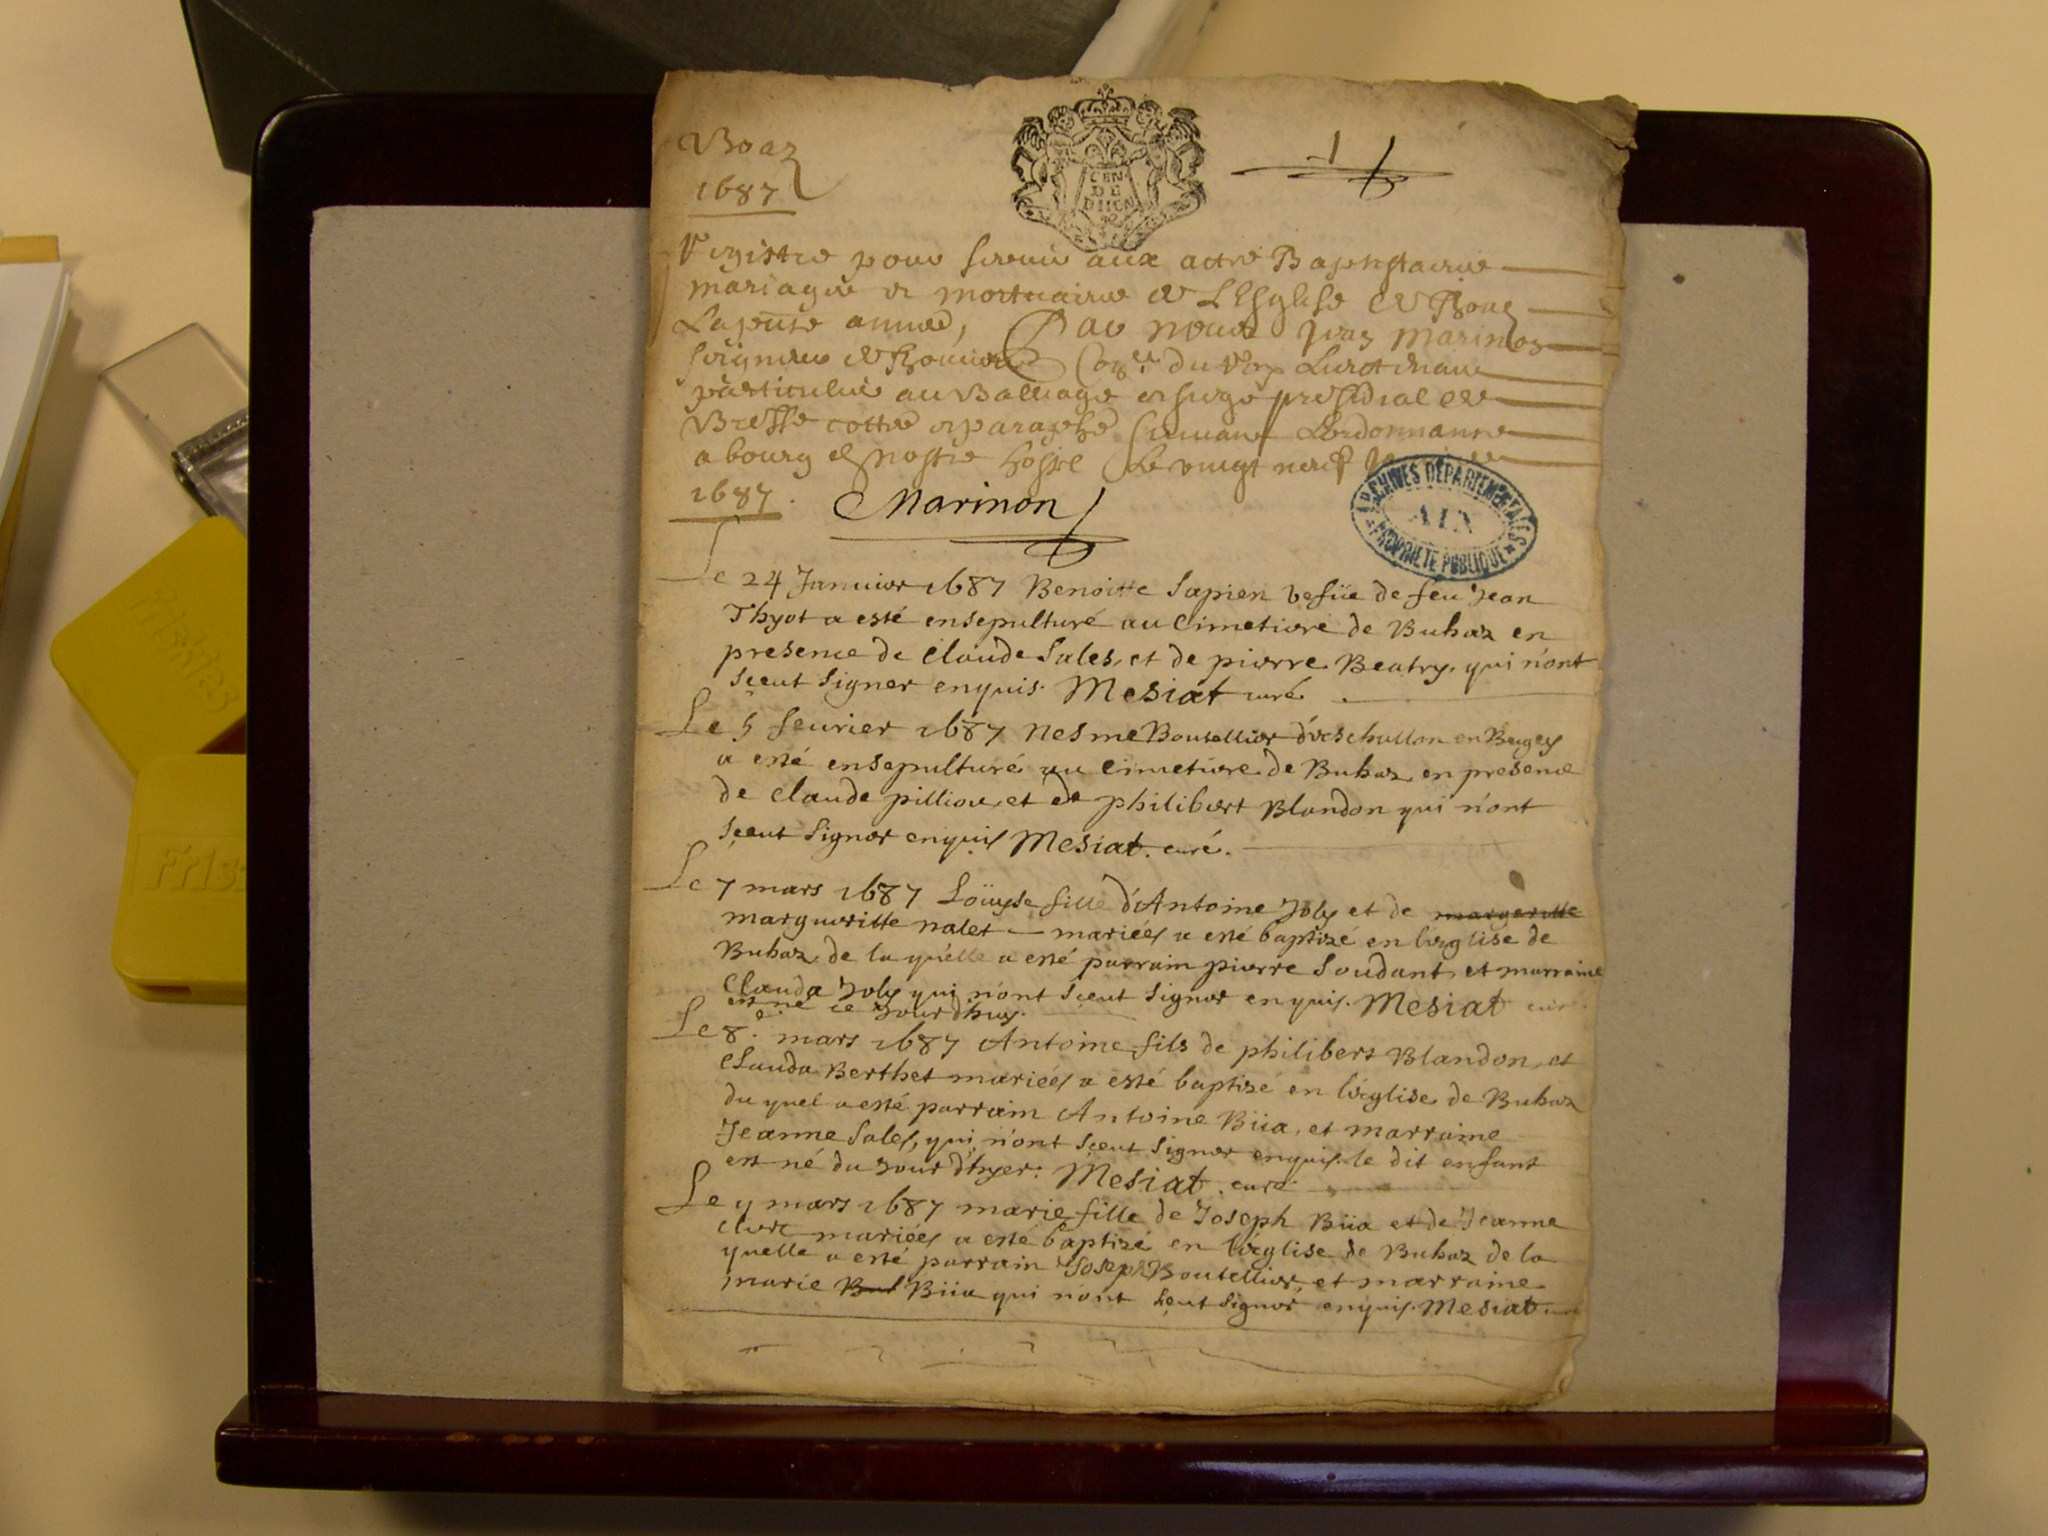 Boaz
1687
GEN
DE
DIION
1
Registre pour servir aux actes Baptistaires
mariages et mortuaires de L'Esglise de
La presente année, Par nous Jean Marinon
seigneur de Conser du Roy Lieutenant
particulier au Bailliage et siege presidial de
Bresse cotté et paraphé suivant Lordonnance
a bourg en nostre hostel Le vingt neuf
1687. Marinon
ARCHIVES DÉPARTEMENTALES
AIN
PROPRIÉTÉ PUBLIQUE
Le 24 Januier 1687 Benoitte Sapien vefüe de feu Jean
Thyot a esté ensepulturé au Cimetiere de Buhaz en
presence de Claude Sales, et de pierre Beatry, qui n'ont
sçeut signer enquis. Mesiat curé
Le 5 feurier 1687 Nesme Boutellier d'eschallon en Bugey
a esté ensepulturé au Cimetiere de Buhaz en presence
de Claude pilliou, et de philibert Blandon qui n'ont
sçeut signer enquis Mesiat. curé.
Le 7 mars 1687 Loüyse fille d'Antoine Joly et de margeritte
margueritte nalet mariées a esté baptizé en l'eglise de
Buhaz, de la quélle a esté parrain pierre Soudant, et marraine
Clauda Joly qui n'ont sçeut signer enquis. Mesiat curé
est né ce Jourdhuy.
Le 8e. mars 1687 Antoine fils de philibert Blandon, et
Clauda Berthet mariées a esté baptizé en l'église de Buhaz
du quel a esté parrain Antoine Biia, et marraine
Jeanne Sales, qui n'ont sçeut signer enquis. le dit enfant
est né du Jour d'hyer. Mesiat. curé
Le 9 mars 1687 marie fille de Joseph Biia et de Jeanne
clerc mariées a esté baptizé en l'église de Buhaz de la
quelle a esté parrain Joseph Boutellier, et marraine
marie Bul Biia qui n'ont sçeut signer enquis. Mesiat curé
Friskies
Frisk